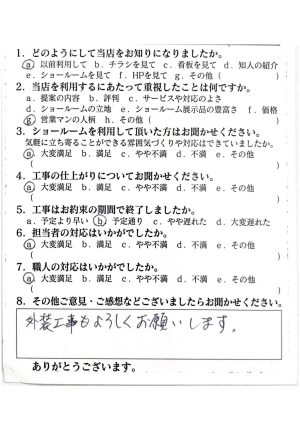 1．どのようにして当店をお知りになりましたか。
a．以前利用して b．チラシを見て c．看板を見て d．知人の紹介
e．ショールームを見て f．HPを見て g．その他（　　　　）
2．当店を利用するにあたって重視したことは何ですか。
a．提案の内容 b．評判 c．サービスや対応のよさ
d．ショールームの立地 e．ショールーム展示品の豊富さ f．価格
g．営業マンの人柄 h．その他（　　　　）
3．ショールームを利用して頂いた方はお聞かせください。
気軽に立ち寄ることができる雰囲気づくりや対応はできていましたか。
a．大変満足 b．満足 c．やや不満 d．不満 e．その他
（　　　　）
4．工事の仕上がりについてお聞かせください。
a．大変満足 b．満足 c．やや不満 d．不満 e．その他
（　　　　）
5．工事はお約束の期間で終了しましたか。
a．予定より早い b．予定通り c．やや遅れた d．大変遅れた
6．担当者の対応はいかがでしたか。
a．大変満足 b．満足 c．やや不満 d．不満 e．その他
（　　　　）
7．職人の対応はいかがでしたか。
a．大変満足 b．満足 c．やや不満 d．不満 e．その他
（　　　　）
8．その他ご意見・ご感想などございましたらお聞かせください。
外装工事もよろしくお願いします。
ありがとうございます。